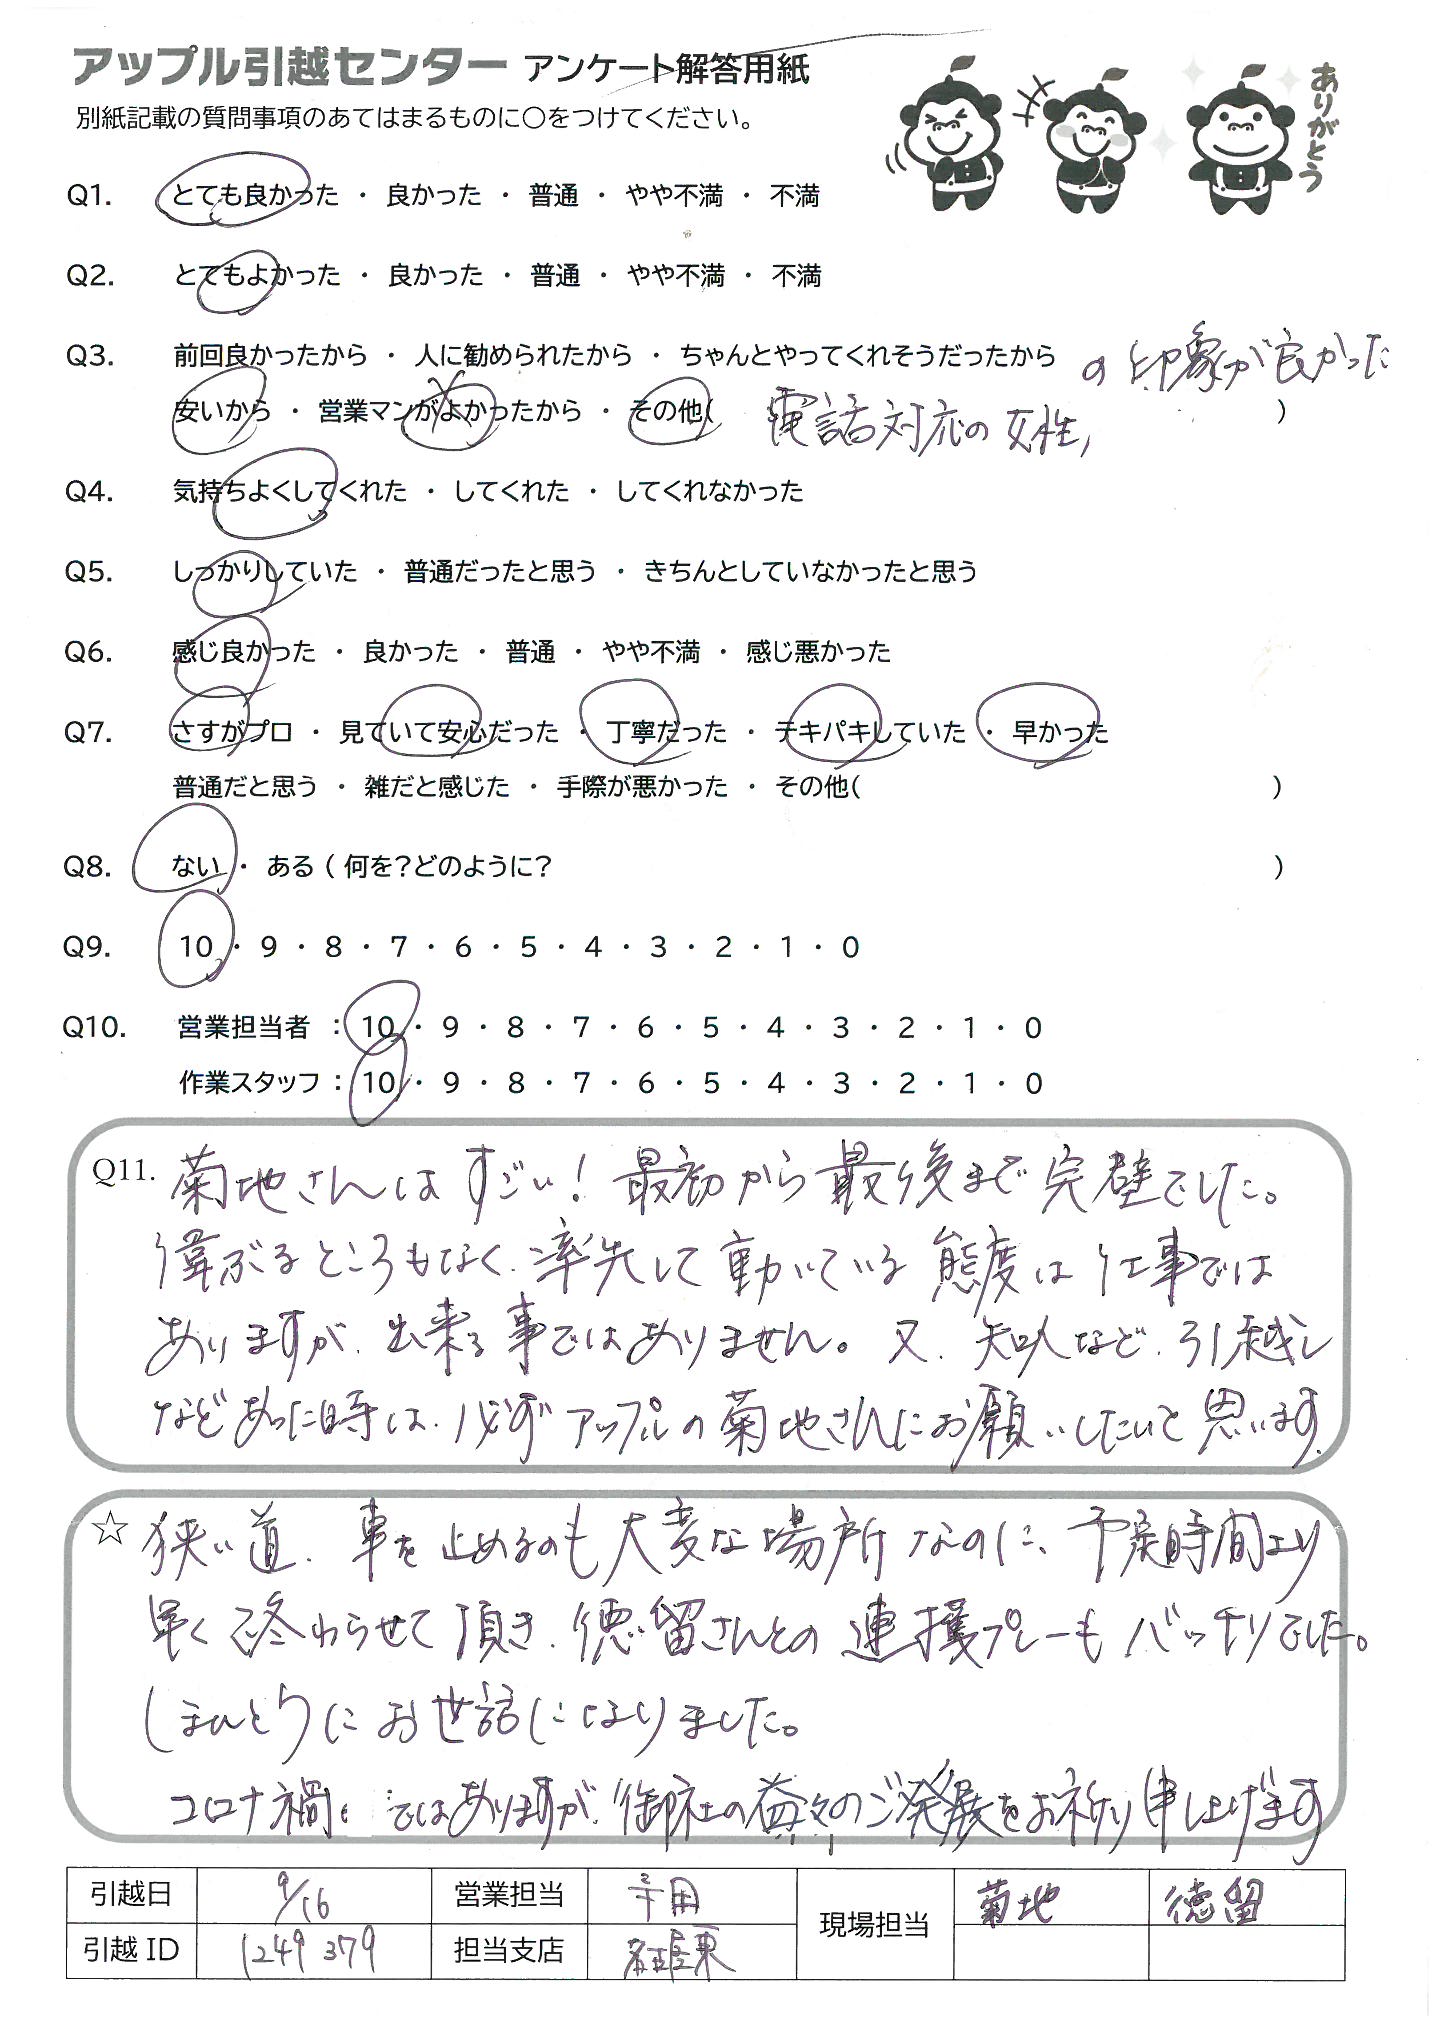 アップル引越センター アンケート解答用紙
別紙記載の質問事項のあてはまるものに〇をつけてください。
ありがとう
Q1. とても良かった ・ 良かった ・ 普通 ・ やや不満 ・ 不満
Q2. とてもよかった ・ 良かった ・ 普通 ・ やや不満 ・ 不満
Q3. 前回良かったから ・ 人に勧められたから ・ ちゃんとやってくれそうだったから
安いから ・ 営業マンがよかったから ・ その他( 電話対応の女性 )
の印象が良かった
Q4. 気持ちよくしてくれた ・ してくれた ・ してくれなかった
Q5. しっかりしていた ・ 普通だったと思う ・ きちんとしていなかったと思う
Q6. 感じ良かった ・ 良かった ・ 普通 ・ やや不満 ・ 感じ悪かった
Q7. さすがプロ ・ 見ていて安心だった ・ 丁寧だった ・ テキパキしていた ・ 早かった
普通だと思う ・ 雑だと感じた ・ 手際が悪かった ・ その他( )
Q8. ない ・ ある ( 何を？どのように？ )
Q9. 10 ・ 9 ・ 8 ・ 7 ・ 6 ・ 5 ・ 4 ・ 3 ・ 2 ・ 1 ・ 0
Q10. 営業担当者 : 10 ・ 9 ・ 8 ・ 7 ・ 6 ・ 5 ・ 4 ・ 3 ・ 2 ・ 1 ・ 0
作業スタッフ : 10 ・ 9 ・ 8 ・ 7 ・ 6 ・ 5 ・ 4 ・ 3 ・ 2 ・ 1 ・ 0
Q11. 菊地さんはすごい！最初から最後まで完璧でした。
偉ぶるところもなく、率先して動いている態度は仕事では
ありますが、出来る事ではありません。又、知人など、引越し
などあった時は、必ずアップルの菊地さんにお願いしたいと思います。
☆ 狭い道、車を止めるのも大変な場所なのに、予定時間より
早く終わらせて頂き、徳留さんとの連携プレーもバッチリでした。
ほんとうにお世話になりました。
コロナ禍 ではありますが、御社の益々のご発展をお祈り申し上げます
引越日 9/16 営業担当 現場担当 菊地 徳留
引越ID 1249379 担当支店 名古屋東